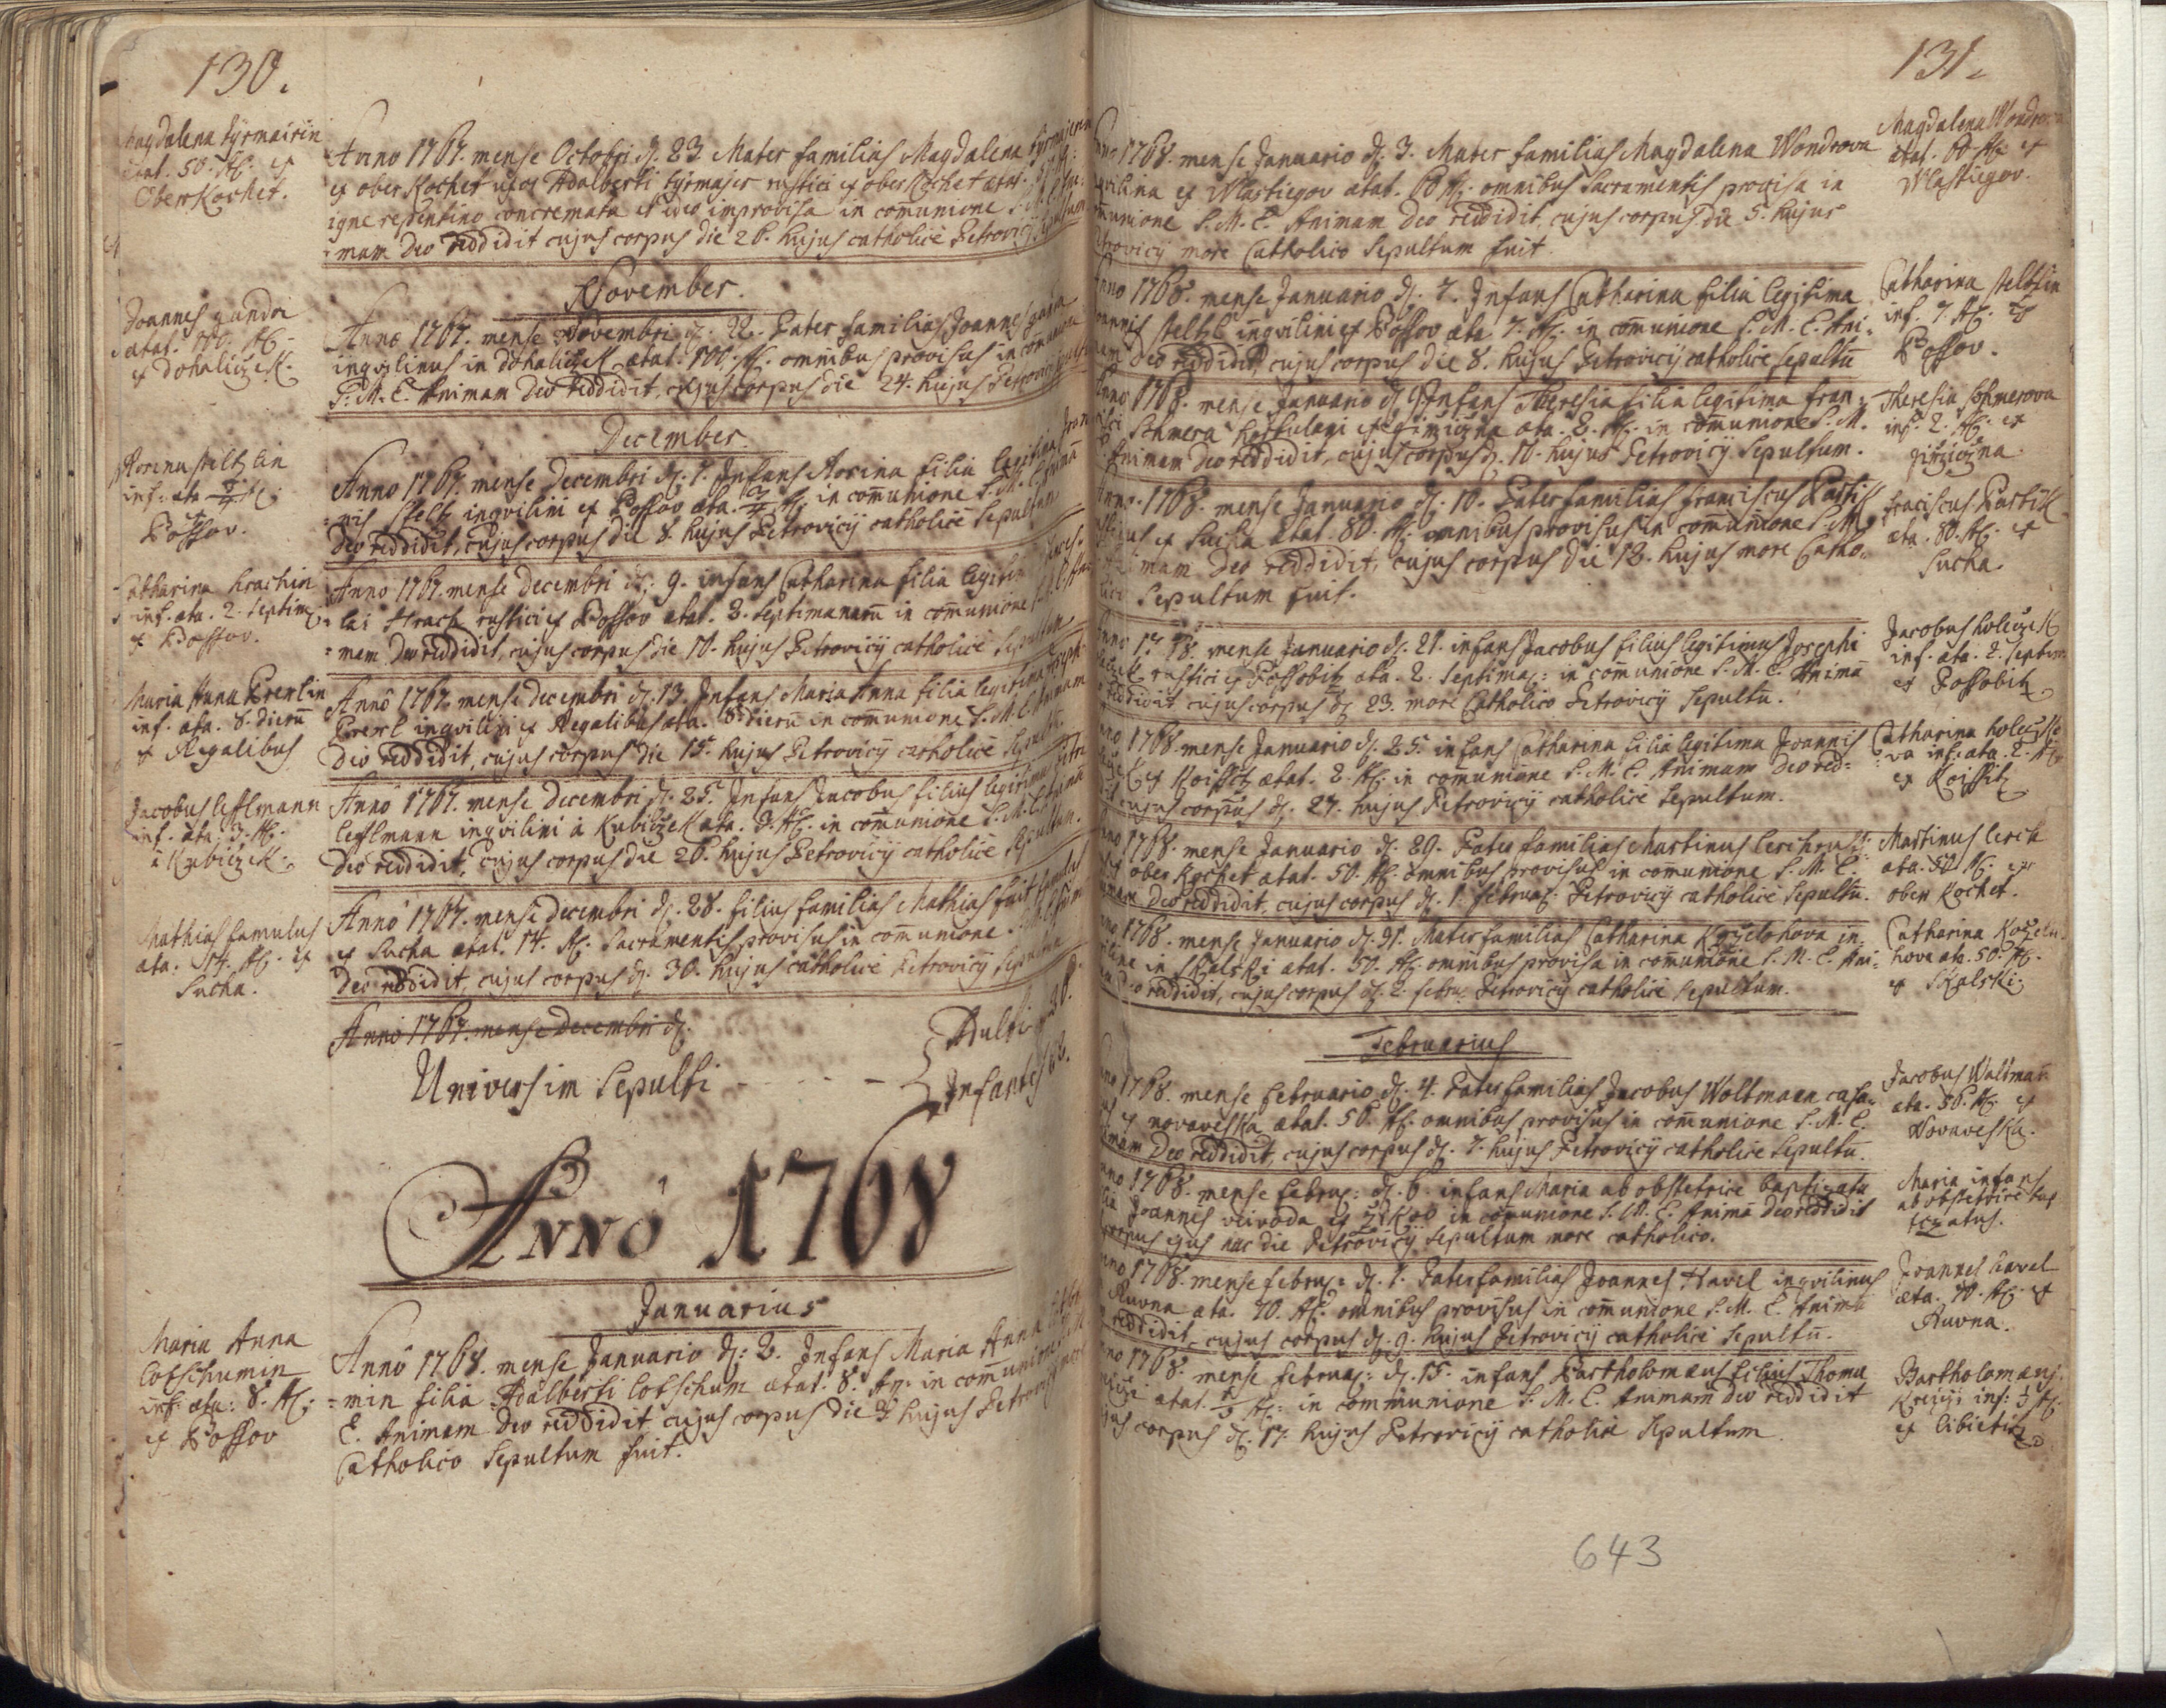 130.
Magdalena tyrmairin
ætat. 50. Aõ. ex
Ober Kochet.
Anno 1767. mense Octobri dj. 23. Mater familias Magdalena
ex ober Kochet uxor Adalberti tyrmajer rustici ex ober Kochet ætat.
igne repentino concremata et ideo improvisa in com̄unione
mam Deo reddidit cujus corpus die 26. hujus catholicè Petrovicij
November.
Joannes ganda
ætat. 100. Aõ.
ex Dohaliczek.
Anno 1767. mense Novembri dj. 22. Pater familias Joannes
inqvilinus in Dohaliczek ætat. 100. Aõ. omnibus provisus in com̄union
S. M. E. Animam Deo reddidit, cujus corpus die 24. hujus Petrovicij
December.
steltzlin
inf: æta. 3/4 Aõ:
ex
Possov.
Anno 1767. mense Decembri dj. 7. Infans filia legitima
nis steltzl inqvilini ex Possov æta. 3/4 Aõ: in com̄unione S. M. E. Animā
Deo reddidit, cujus corpus die 8. hujus Petrovicij catholicè Sepultum.
Catharina hrachin
inf. æta. 2. Septim:
ex Possov.
Anno 1767. mense Decembri dj. 9. infans Catharina filia legitim
lai Hrach rustici ex Possov ætat. 2. Septimanarū in com̄unione
mam Deo reddidit, cujus corpus die 10. hujus Petrovicij catholicè Sepultum
Maria Anna Prerlin
inf. æta. 8. dierū
ex Regalibus
Anno 1767. mense Decembri dj. 13. Infans Maria Anna filia legitima
Prerl inqvilini ex Regalibus æta. 8. dierū in com̄unione S. M. E. Animam
Deo reddidit, cujus corpus die 15. hujus Petrovicij catholicè Sepultū.
Jacobus leffelmann
inf. æta. 3. Aõ.
à Kubiczek.
Anno 1767. mense Decembri dj. 25. Infans Jacobus filius legitimus
leffelmann inqvilini à Kubiczek æta. 3. Aõ. in com̄unione S. M. E. Animā
Deo reddidit, cujus corpus die 26. hujus Petrovicij catholicè Sepultum.
Mathias famulus
æta. 14. Aõ. ex
Sucha.
Anno 1767. mense Decembri dj. 28. filius familias Mathias fuit famulus
ex Sucha ætat. 14. Aõ. Sacramentis provisus in com̄unione
Deo reddidit, cujus corpus dj. 30. hujus catholicè Petrovicij Sepultum
Anno 1767. mense Decembri dj.
Universim Sepulti - - - - - { Adulti
Infantes
Anno 1768
Januarius
Maria Anna
lotschumin
inf: æta: 8. Aõ:
ex Possov
Anno 1768. mense Januario dj: 2. Infans Maria Anna
min filia Adalberti lotschum ætat. 8. Aõ: in com̄unione
E. Animam Deo reddidit cujus corpus die 3 hujus Petrovicij
Catholico Sepultum fuit.
131.
1768. mense Januario dj. 3. Mater familias Magdalena Wondrova
inqvilina ex Wlastiegov ætat. 60 Aõ. omnibus Sacramentis provisa in
munione S. M. E. Animam Deo reddidit, cujus corpus die 5. hujus
Petrovicij more Catholico Sepultum fuit.
Magdalena Wondrova
ætat. 60 Aõ: ex
Wlastiegov.
Anno 1768. mense Januario dj. 7. Infans Catharina filia legitima
Joannis steltzl inqvilini ex Possov æta. 7. Aõ. in com̄unione S. M. E. Ani-
mam Deo reddidit, cujus corpus die 8. hujus Petrovicij catholicè Sepultū
Catharina steltzlin
inf. 7. Aõ. ex
Possov.
Anno 1768. mense Januario dj. 9 Infans Theresia filia legitima Fran-
Schmera ex æta. 2. Aõ. in com̄unione S. M.
E. Animam Deo reddidit, cujus corpus dj. 10. hujus Petrovicij Sepultum.
Theresia Schmerova
inf. 2. Aõ. ex
Anno. 1768. mense Januario dj. 10. Pater familias Franciscus Pastik
ex Sucha ætat. 80. Aõ. omnibus provisus in com̄unione S. M.
mam Deo reddidit, cujus corpus die 12. hujus more Catho-
lico Sepultum fuit.
Franciscus Pastik
æta. 80. Aõ. ex
Sucha.
1768. mense Januario dj. 21. infans Jacobus filius legitimus Josephi
rustici ex Possobitz æta. 2. Septima: in com̄unione S. M. E. Animā
reddidit cujus corpus dj. 23. more Catholico Petrovicij Sepultū.
Jacobus holeczek
inf. æta. 2. septim:
ex Possobitz
1768. mense Januario dj. 25. infans Catharina filia legitima Joannis
ex Koissitz ætat. 2. Aõ: in com̄unione S. M. E. Animam Deo red-
dit cujus corpus dj. 27. hujus Petrovicij catholicè Sepultum.
Catharina holeczko-
va inf: æta. 2. Aõ
ex Koissitz
1768. mense Januario dj. 29. Pater familias Martinus lerch rusti-
ober Kochet ætat. 50. Aõ. omnibus provisus in com̄unione S. M. E.
mam Deo reddidit, cujus corpus dj. 1. februa: Petrovicij catholicè Sepultū.
Martinus lerch
æta. 50. Aõ. ex
ober Kochet.
1768. mense Januario dj. 31. Mater familias Catharina in-
in Skalski ætat. 50. Aõ. omnibus provisa in com̄unione S. M. E. Ani-
Deo reddidit, cujus corpus dj. 2. febru: Petrovicij catholicè Sepultum.
Catharina
hova æta. 50. Aõ.
ex Skalski.
Februarius
1768. mense Februario dj. 4. Pater familias Jacobus Woltmann casa-
ex novaveska ætat. 56. Aõ. omnibus provisus in com̄unione S. M. E.
mam Deo reddidit, cujus corpus dj. 7. hujus Petrovicij catholicè Sepultū.
Jacobus Waltmañ
æta. 56. Aõ. ex
Novaveska.
1768. mense februa: dj. 6. infans Maria ab obstetrice baptizata
Joannis veivoda ex in com̄unione S. M. E. Animā Deo reddidit
corpus ejus hac die Petrovicij Sepultum more catholico.
Maria infans
ab obstetrice bap
tizatus.
1768. mense februa: dj. 7. Pater familias Joannes Havel inqvilinus
Ruvna æta. 70. Aõ. omnibus provisus in com̄unione S. M. E. Animā
reddidit, cujus corpus dj. 9. hujus Petrovicij catholicè Sepultū.
Joannes havel
æta. 70. Aõ. ex
Ruvna.
1768. mense februa: dj. 15. infans Bartholomæus filius Thomæ
ætat. 1/2 Aõ: in communione S. M. E. Animam Deo reddidit
cujus corpus dj. 17. hujus Petrovicij catholicè Sepultum.
Bartholomæus
Kreiczi inf: 1/2 Aõ.
ex libietitz
643